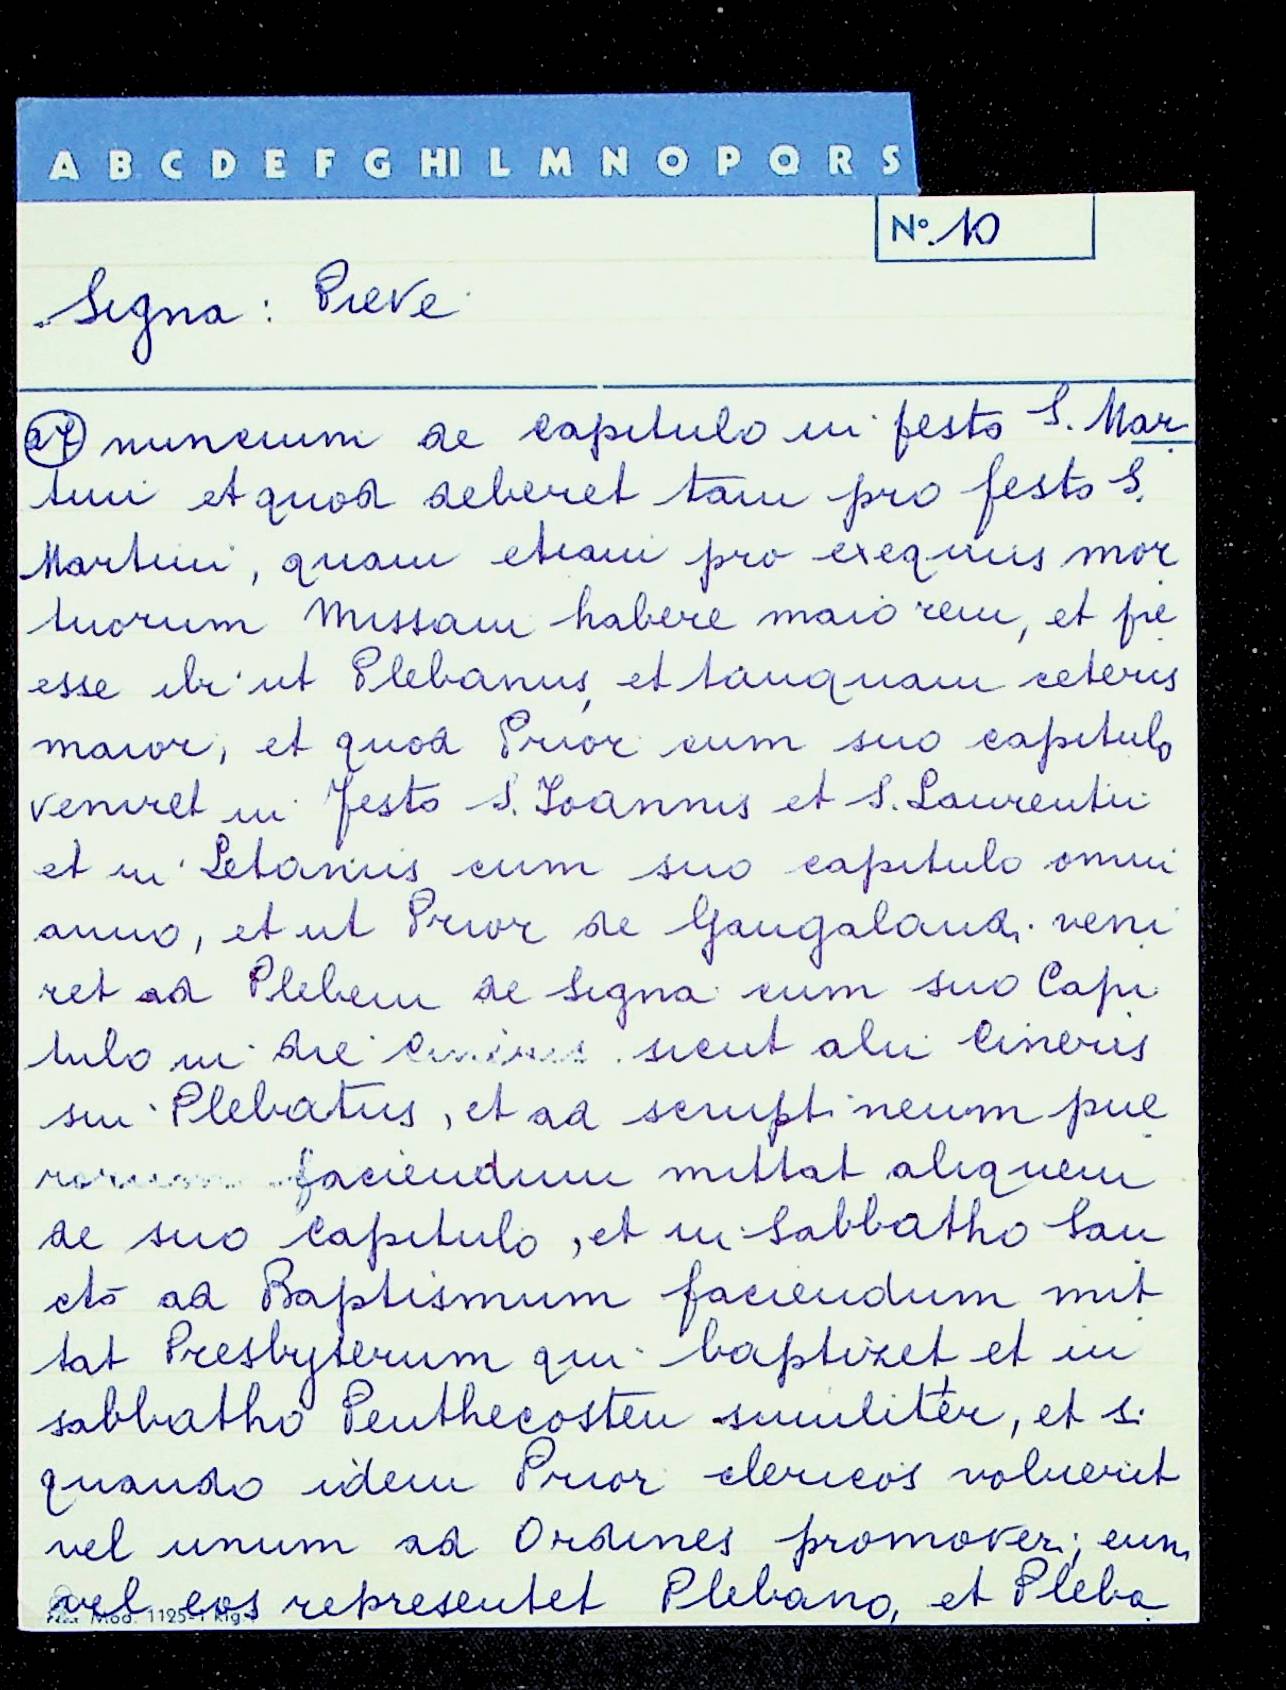 A B C D E F G HI L M N O P Q R S
N° 10
Segna: Pieve
27 nuncium de capitulo in festo S. Mar
tini et quod deberet tam pro festo S.
Martini, quam etiam pro exequiis mor
tuorum Missam habere maiorem, et pre
esse ibi ut Plebanus, et tanquam ceteris
maior, et quod Prior cum suo capitulo
veniret in festo S. Ioannis et S. Laurentii
et in Letaniis cum suo capitulo omni
anno, et ut Prior de Gangalandi veni
ret ad Plebem de Signa cum suo Capi
tulo in die sicut alii Cineris
sui Plebatus, et ad scruptineum pue
rorum faciendum mittat aliquem
de suo capitulo, et in Sabbatho San
cto ad Baptismum faciendum mit
tat Presbyterum qui baptizet et in
sabbatho Penthecosten similiter, et si
quando idem Prior clericos voluerit
vel unum ad Ordines promoveri; eum
vel eos representet Plebano, et Pleba
Mod. 1125-1 Kg.